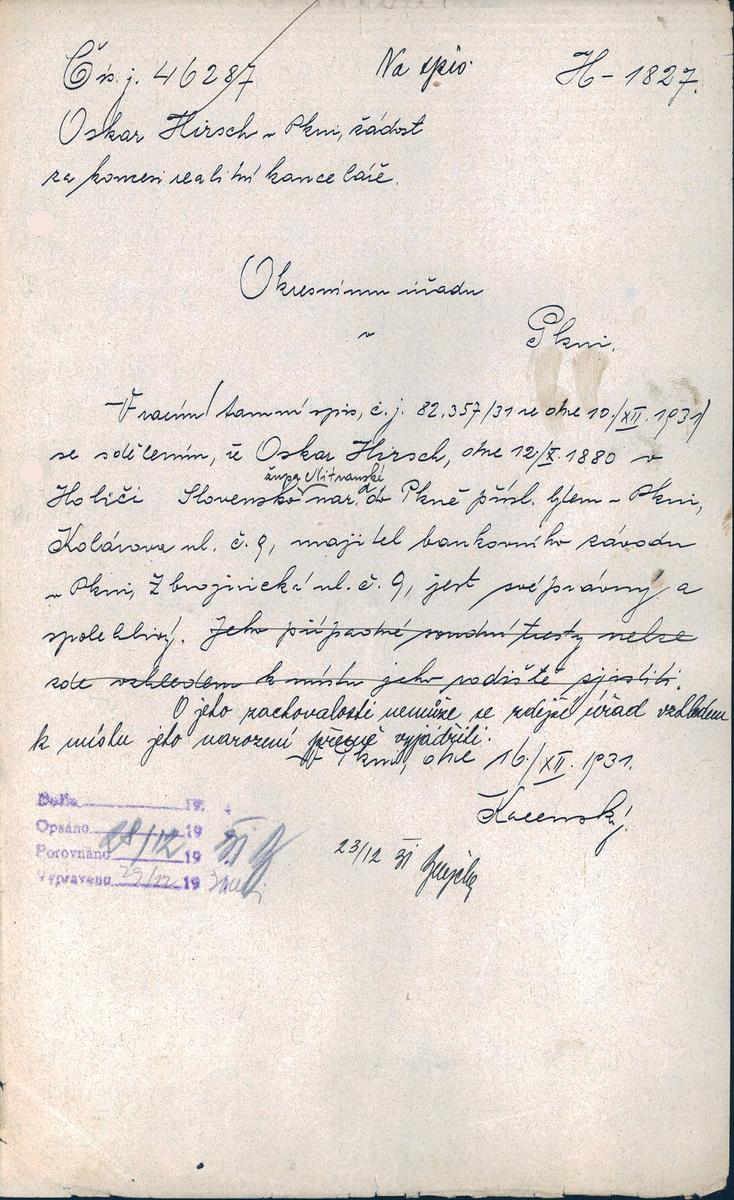 Čís. j. 46287 Na spis. H - 1827.
Oskar Hirsch v Plzni, žádost
za koncesi realitní kanceláře.
Okresnímu úřadu
v
Plzni.
Vracím tamní spis, č. j. 82.357/31 ze dne 10./XII. 1931
se sdělením, že Oskar Hirsch, dne 12/X. 1880 v
župa Nitranská
Holiči Slovensko nar. do Plzně přísl. bytem v Plzni,
Kolárova ul. č. 9, majitel bankovního závodu
v Plzni, Zbrojnická ul. č. 9, jest svéprávný a
spolehlivý. Jeho případné soudní tresty nelze
zde vzhledem k místu jeho rodiště zjistiti.
O jeho zachovalosti nemůže se zdejší úřad vzhledem
k místu jeho narození přesně vyjádřiti.
V Plzni, dne 16/XII. 1931.
Došlo 19
Opsáno 19
Porovnáno 28/12 19 31
Vypraveno 29/12 19
23/12 31